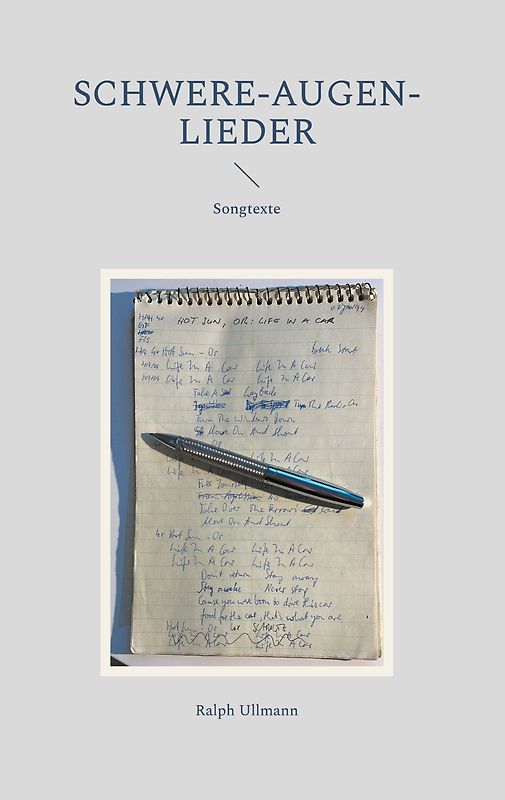 SCHWERE-AUGEN-
LIEDER
Songtexte
HOT SUN, OR: LIFE IN A CAR
4x Hot Sun - Or break Start
Life In A Car Life In A Car
Life In A Car Life In A Car
Take A Lay Back
Turn The Radio On
Turn The Windows Down
Move On And Shout
Or
Life In A Car
Life
No
Take Over The
Move On And Shout
4x Hot Sun - Or
Life In A Car Life In A Car
Life In A Car Life In A Car
Don't return Stay away
Stay awake Never stop
Cause you were born to drive this car
food for the car, that's what you are
Hot Sun Or 4x
Life In A Car Life In A Car
Life In A Car
Ralph Ullmann